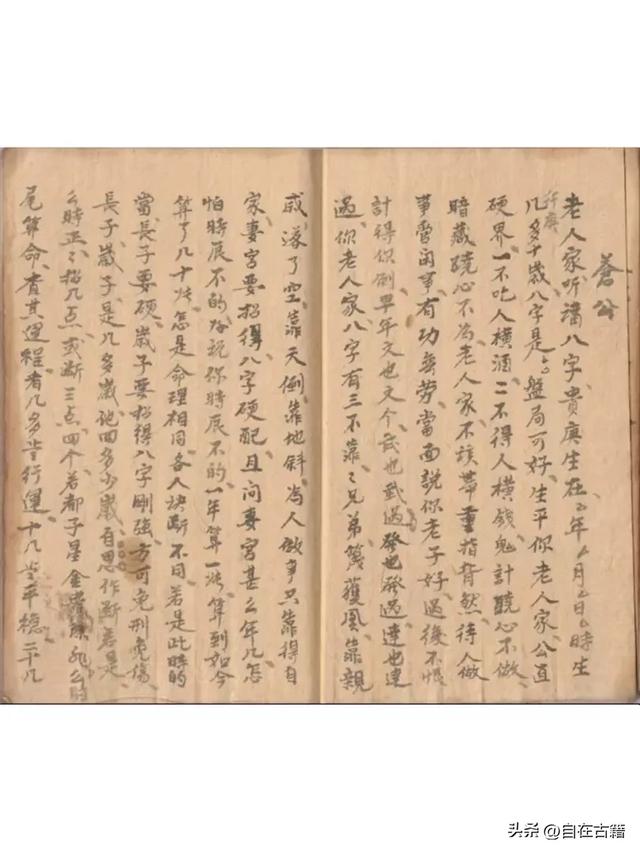 蒼公
老人家听講八字貴庚生在厶年厶月厶日厶時生
貴庚
几多十歲八字是厶厶盤局可好生平你老人家公直
硬界一不吃人橫酒二不得人橫錢鬼計睨心不做
暗藏睨心不為老人家不談帶重指背然待人做
事雪閑事有功無勞當面說你老子好過後不恨
計得你倒早年文也文个武也武過發也發過達也達
過你老人家八字有三不靠靠兄弟篾獲風靠親
戚湴了空靠天倒靠地斜為人做事只靠得自
家妻宮要招得八字硬配且问妻宮甚么年几怎
怕時辰不的好說你時辰不的一年算一次算到如今
算了几十次怎是命理相同各人決斷不同若是此時的
當長子要硬歲子要招得八字剛強方可免刑免傷
長子歲子是几多歲配四多少歲自思作断若是
么時正正招几点或断三点四个若都子星金貴
尾算命責其運程者几多岁行運十几岁平穩二十几
头条@自在古籍